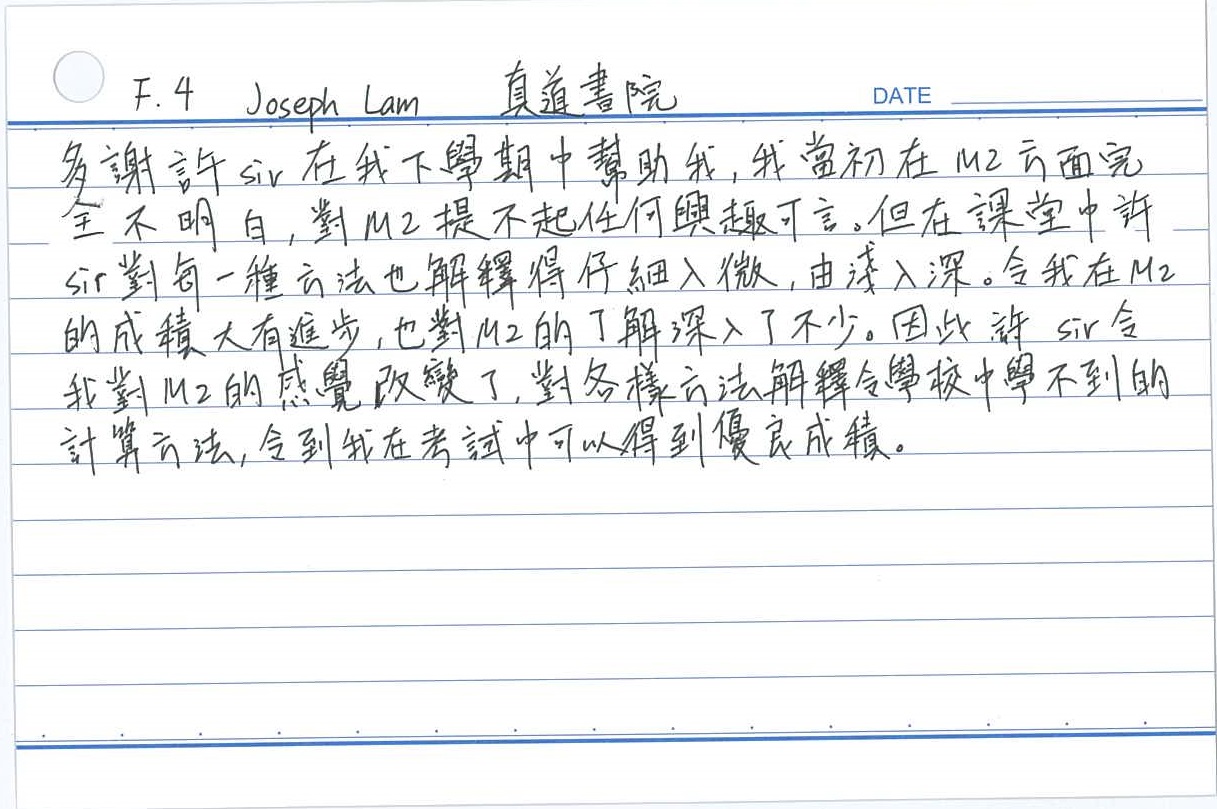 F.4 Joseph Lam 真道書院
DATE
多謝許 sir 在我下學期中幫助我,我當初在 M2 方面完
全不明白,對 M2 提不起任何興趣可言。但在課堂中許
sir 對每一種方法也解釋得仔細入微,由淺入深。令我在 M2
的成積大有進步,也對 M2 的了解深入了不少。因此許 sir 令
我對 M2 的感覺改變了,對各樣方法解釋令學校中學不到的
計算方法,令到我在考試中可以得到優良成積。